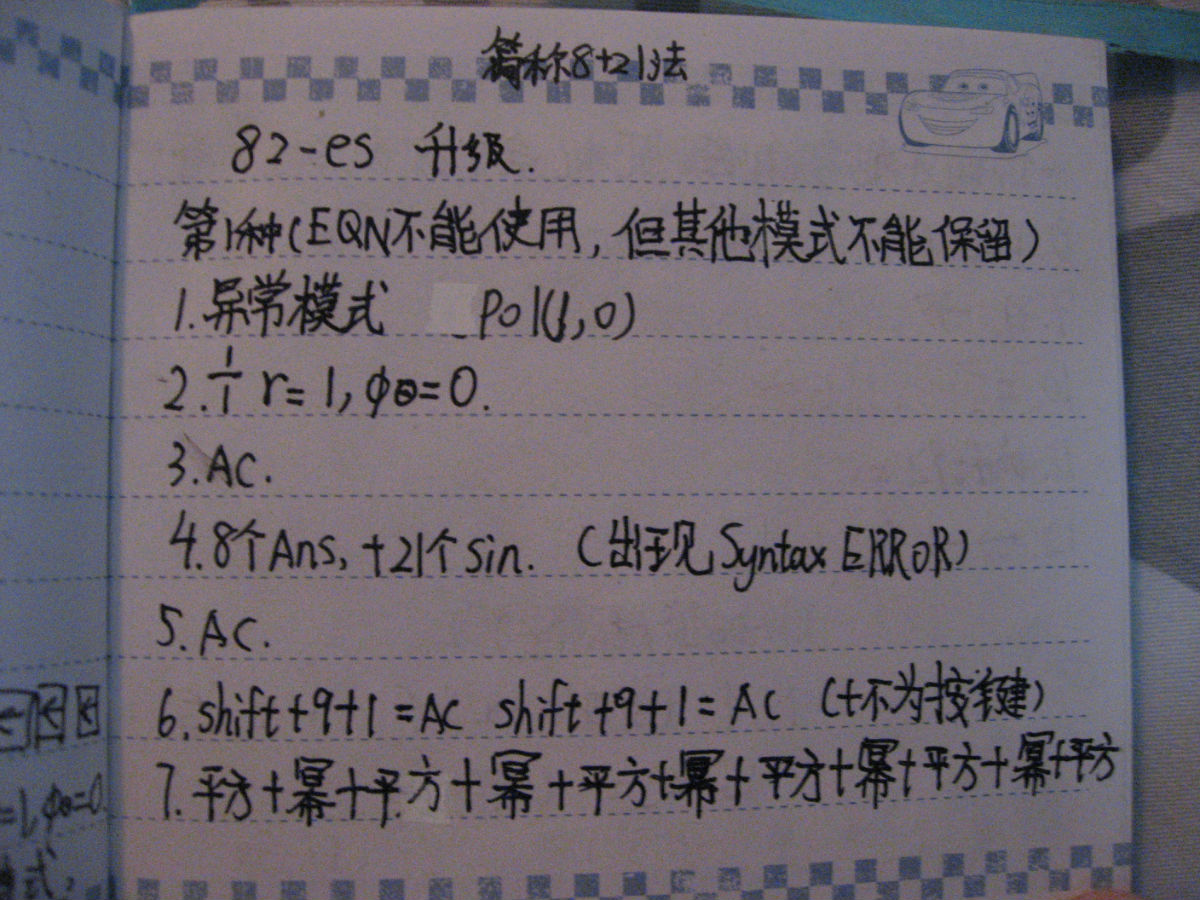 简称8+21法
82-es 升级.
第1种(EQN不能使用,但其他模式不能保留)
1.异常模式 Pol(1,0)
2.1/1 r=1,φθ=0.
3.AC.
4.8个Ans,+21个sin. (出现Syntax ERROR)
5.AC.
6.shift+9+1=AC shift+9+1=AC (+不为按键)
7.平方+幂+平方+幂+平方+幂+平方+幂+平方+幂+平方
=1,φθ=0.
式,